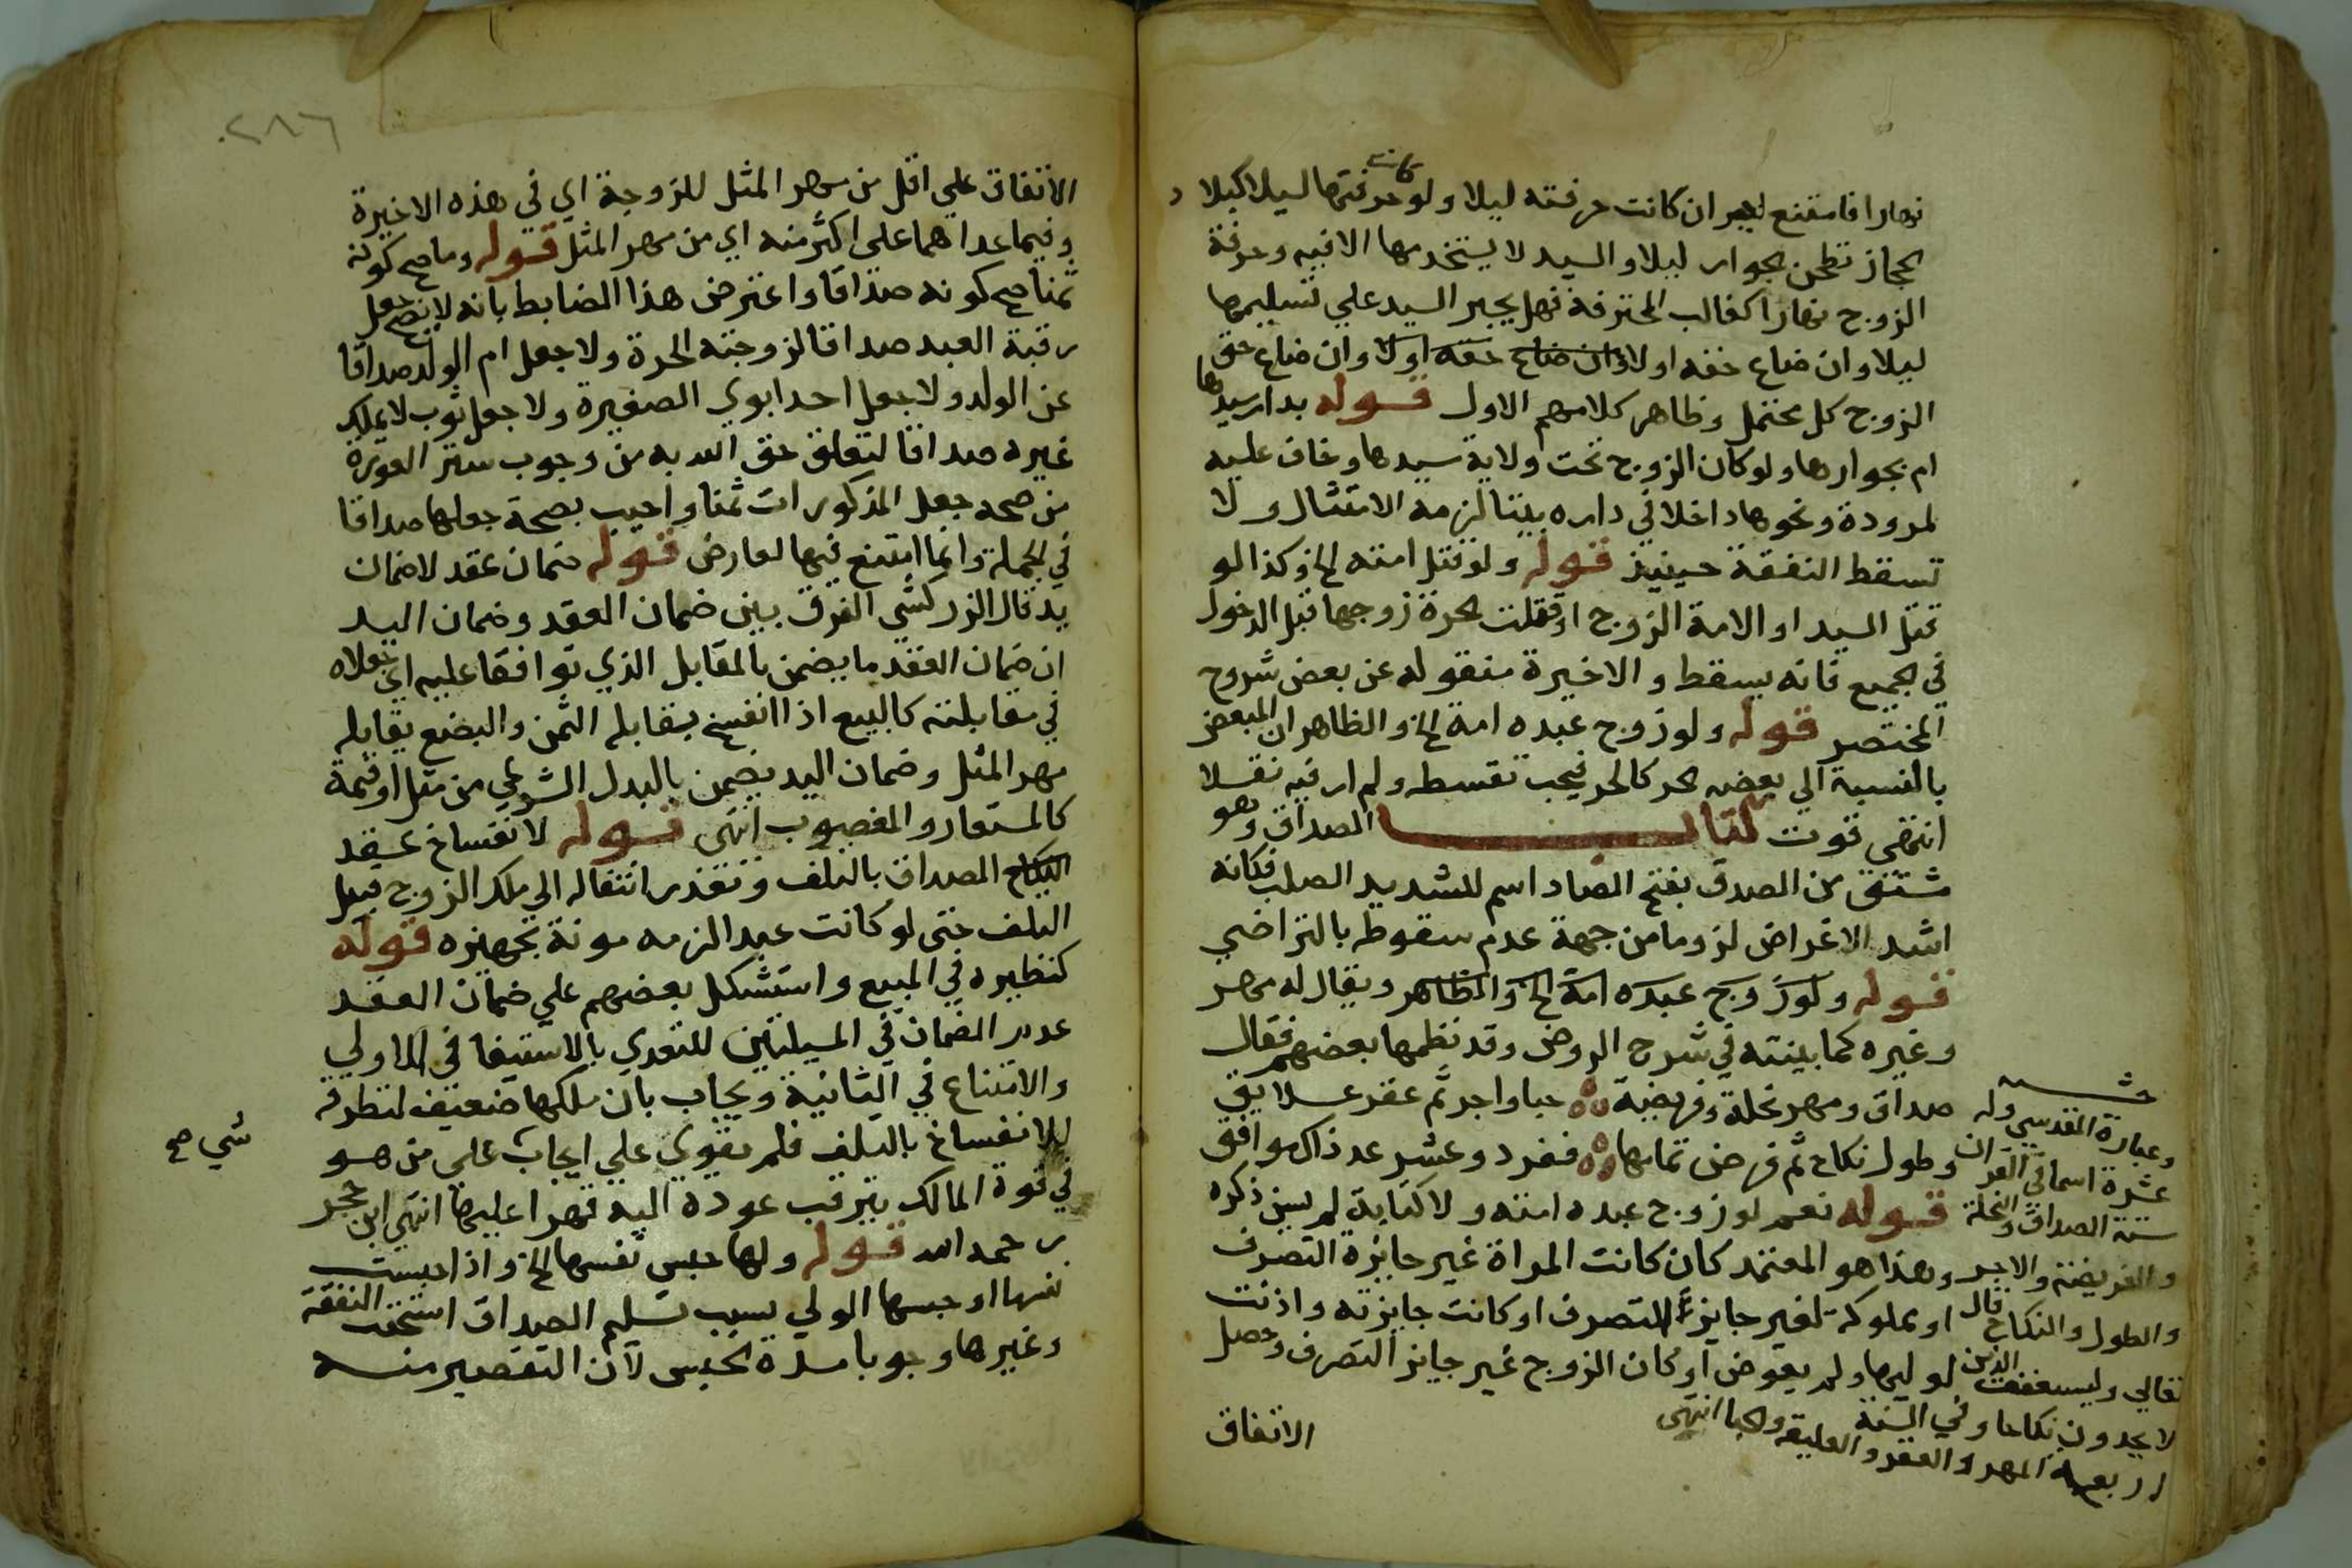 نهارا فامتنع لم يجبر ان كانت حرفته ليلا ولو كانت حرفتها ليلا كبلاد
الحجاز تطحن الجوار ليلا والسيد لا يستخدمها الا فيه وحرفة
الزوج نهارا كغالب المحترفة فهل يجبر السيد علي تسليمها
ليلا وان ضاع حقه اولا وان ضاع حقه اولا وان ضاع حق
الزوج كل محتمل وظاهر كلامهم الاول قوله بدار سيدها
ام بجوارها ولو كان الزوج تحت ولاية سيدها وخاف عليه
لمرودة ونحوها داخلا في داره بيتا لزمه الامتثال ولا
تسقط النفقة حينيذ قوله ولو قتل امته الخ وكذا لو
قتل السيد او الامة الزوج او قتلت الحرة زوجها قبل الدخول
في الجميع فانه يسقط والاخيرة منقوله عن بعض شروح
المختصر قوله ولو زوج عبده امة الخ والظاهر ان المبعض
بالنسبة الي بعضه الحر كالحر فيجب تقسطه ولم ار فيه نقلا
انتهى قوت كتاب الصداق وهو
مشتق من الصدق بفتح الصاد اسم للشديد الصلب فكانه
اشد الاغراض لزوما من جهة عدم سقوطه بالتراضي
قوله ولو زوج عبده امة الخ والظاهر ويقال له مهر
وغيره كما بينته في شرح الروض وقد نظمها بعضهم فقال
صداق ومهر نحلة وفريضة حبا واجر ثم عقر علايق
وطول نكاح ثم فرض تمامها ففرد وعشر عد ذاك موافق
قوله نعم لو زوج عبده امته ولا كتابة لم يسن ذكره
وهذا هو المعتمد كان كانت المراة غير جايزة التصرف
او مملوكة لغير جايز التصرف او كانت جايزته واذنت
لوليها ولم يفوض او كان الزوج غير جايز التصرف وحصل
الاتفاق
وعبارة المقدسي وله
عشرة اسما في القران
ستة الصداق والنحلة
والفريضة والاجر
والطول والنكاح قال
تعالي وليستعفف الذين
لا يجدون نكاحا وفي السنة
اربعة المهر والعقر والعليقة والحبا انتهى
٢٨٦
الاتفاق علي اقل من مهر المثل للزوجة اي في هذه الاخيرة
وفيما عداهما على اكثر منه اي من مهر المثل قوله وما صح كونه
ثمنا صح كونه صداقا واعترض هذا الضابط بانه لا يصح جعل
رقبة العبد صداقا لزوجته الحرة ولا جعل ام الولد صداقا
عن الولد ولا جعل احد ابوي الصغيرة ولا جعل ثوب لا يملك
غيره صداقا لتعلق حق الله به من وجوب ستر العورة
من صحة جعل المذكورات ثمنا واجيب بصحة جعلها صداقا
في الجملة وانما امتنع فيها لعارض قوله ضمان عقد لا ضمان
يد قال الزركشي الفرق بين ضمان العقد وضمان اليد
ان ضمان العقد ما يضمن بالمقابل الذي توافقا عليه اي جعلاه
في مقابلته كالبيع اذا انفسخ يقابله الثمن والبضع يقابله
مهر المثل وضمان اليد يضمن بالبدل الشرعي من مثل او قيمة
كالمستعار والمغصوب انتهى قوله لانفساخ عقد
النكاح الصداق بالتلف وتقدير انتقاله الي ملك الزوج قبيل
التلف حتى لو كانت عبدا لزمه مونة تجهيزه قوله
كنظيره في المبيع واستشكل بعضهم علي ضمان العقد
عدم الضمان في المسيلتين للتعدي بالاستيفا في الاولي
والامتناع في الثانية ويجاب بان ملكها ضعيف لتطرقه
للانفساخ بالتلف فلم يقوي علي ايجاب علي من هو
شي صح
في قوة المالك بترقب عوده اليه قهرا عليها انتهى ابن حجر
رحمه الله قوله ولها حبس نفسها الخ واذا حبست
نفسها او حبسها الولي بسبب تسليم الصداق استحقت النفقة
وغيرها وجوبا مدة الحبس لان التقصير منه